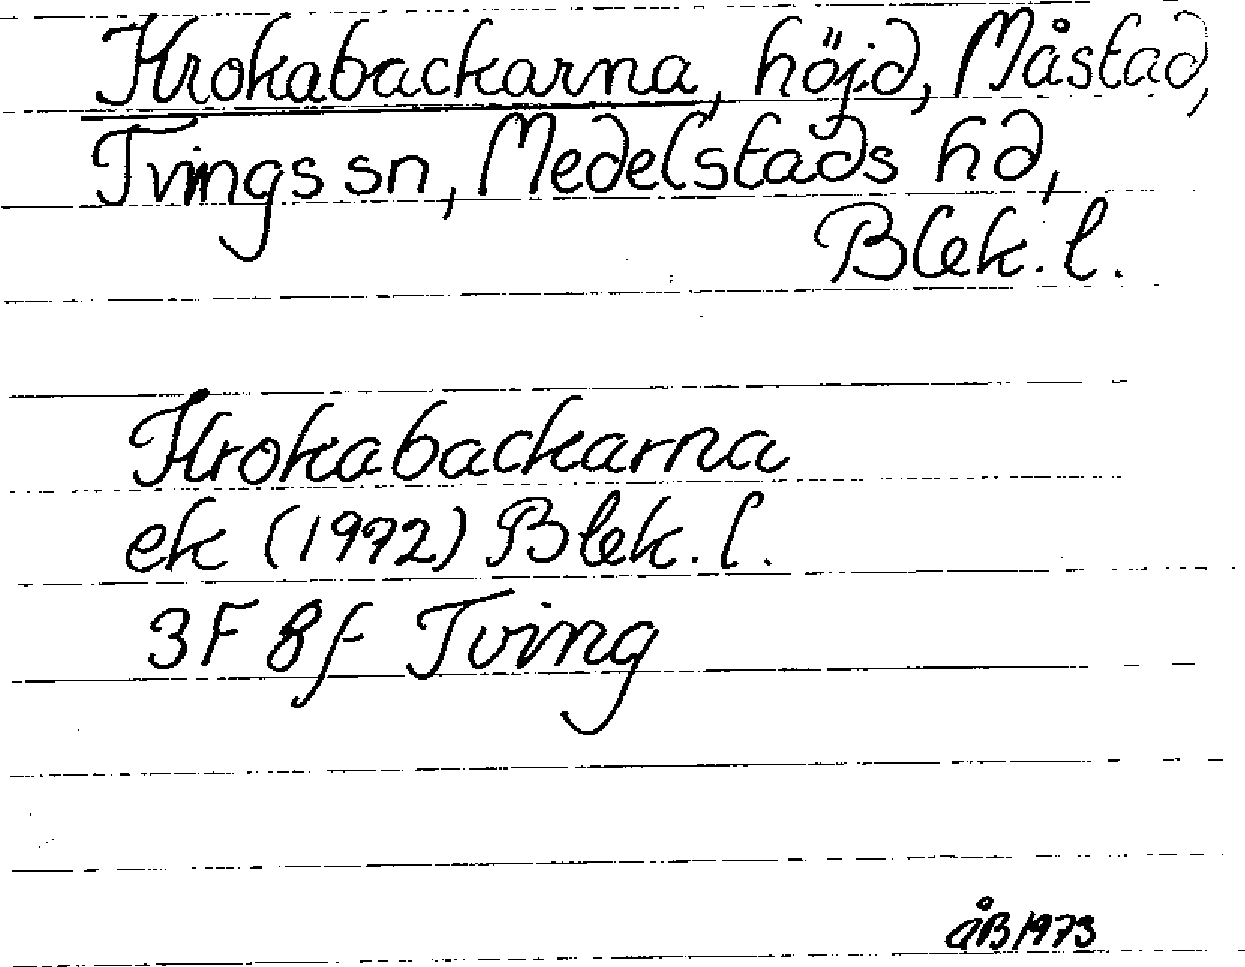 Krokabackarna, höjd, Måstad,
Tvings sn, Medelstads hd,
Blek. l.
Krokabackarna
ek (1972) Blek. l.
3F 8f Tving
ÅB 1973